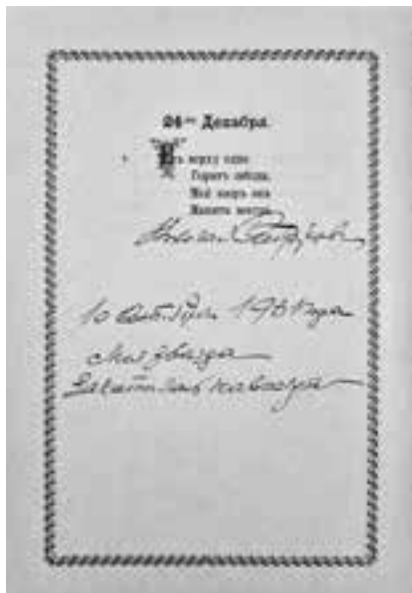 24-го Декабря.
Въ верху одна
Горитъ звѣзда,
Мой взоръ она
Манитъ всегда.
Николай
10 1931 года
Моя звезда
Закатилась навсегда